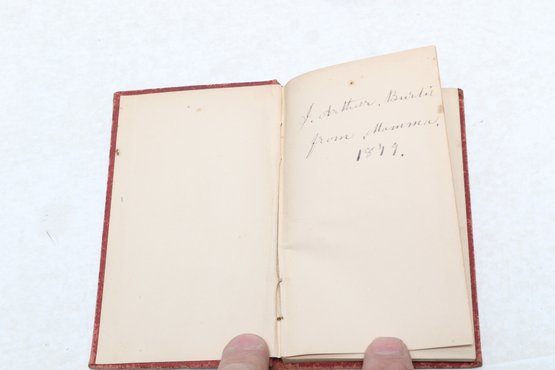 J. Arthur Burbie
from Mamma.
1879.